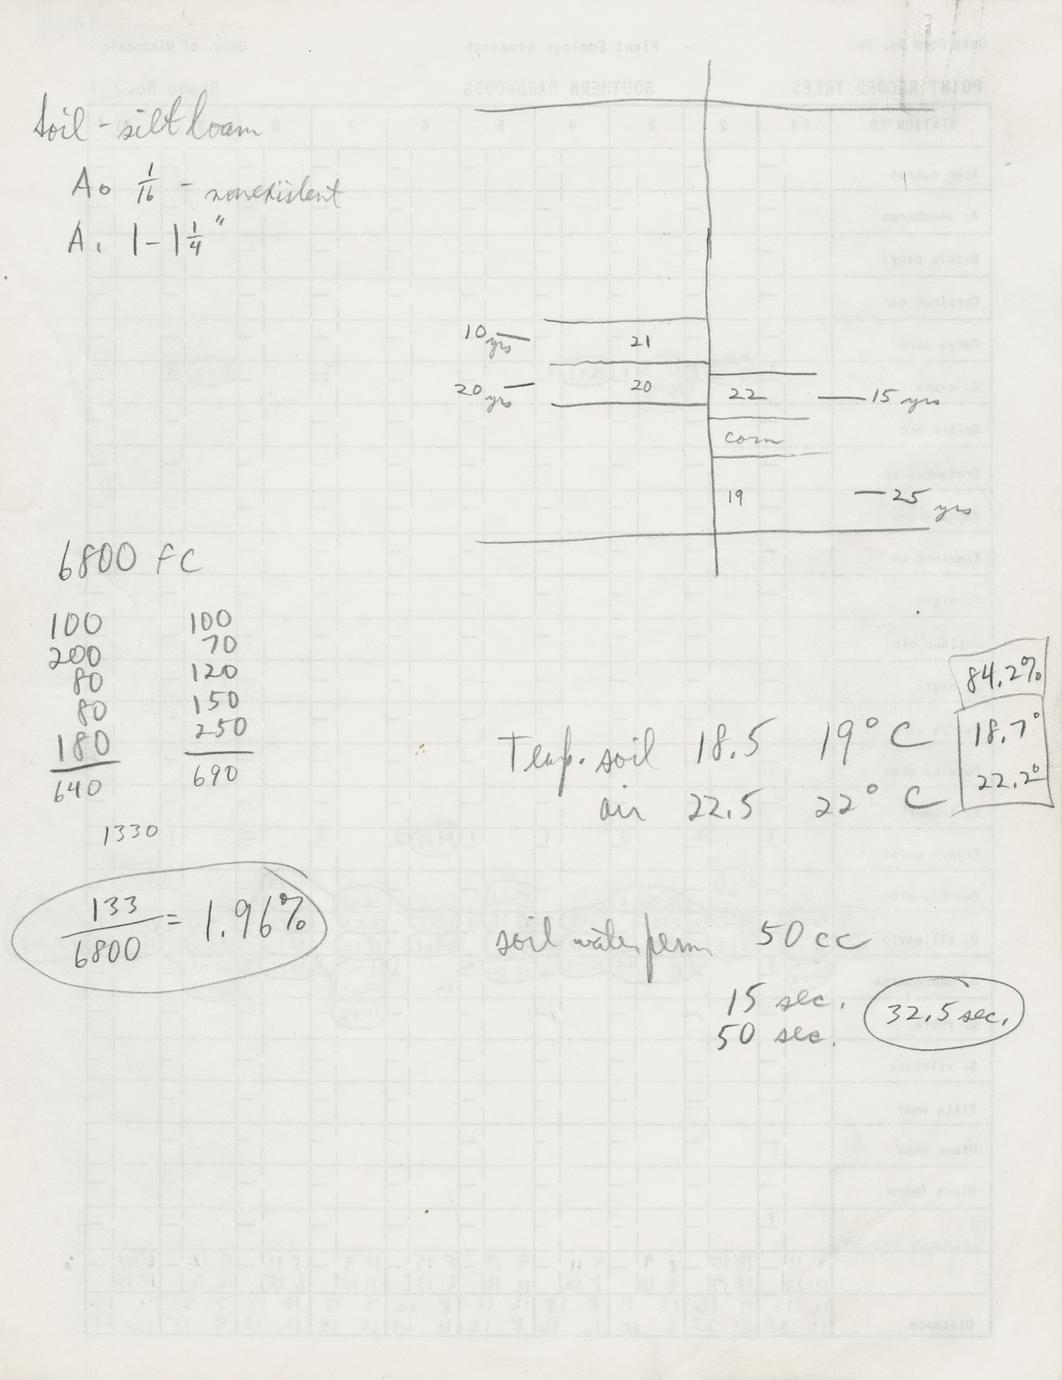 Soil - silt loam
A0 1/16 - nonexistent
A1 1 - 1 1/4"
10 yrs — 21
20 yrs — 20
22 — 15 yrs
corn
19 — 25 yrs
6800 FC
100 100
200 70
80 120
80 150
180 250
640 690
1330
133/6800 = 1.96%
84.2%
Temp. soil 18.5 19° C 18.7°
air 22.5 22° C 22.2°
soil water perm 50 cc
15 sec.
50 sec.
32.5 sec.